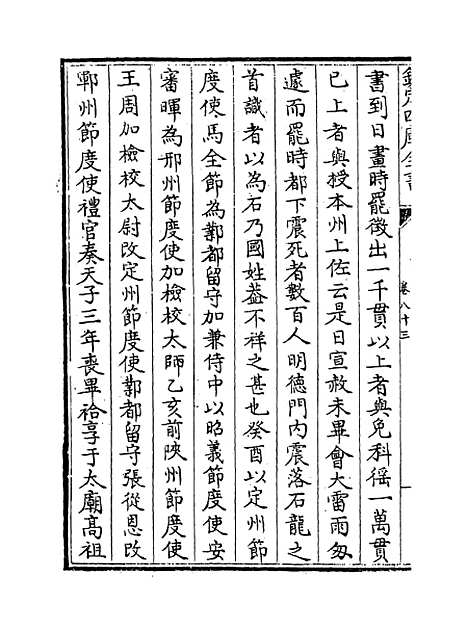 欽定四庫全書
卷八十三
書到日畫時罷徵出一千貫以上者與免科徭一萬貫
已上者與授本州上佐云是日宣赦未畢會大雷雨匆
遽而罷時都下震死者數百人明德門内震落石龍之
首識者以為石乃國姓葢不祥之甚也癸酉以定州節
度使馬全節為鄴都留守加兼侍中以昭義節度使安
審暉為邢州節度使加檢校太師乙亥前陝州節度使
王周加檢校太尉改定州節度使鄴都留守張從恩改
鄆州節度使禮官奏天子三年喪畢祫享于太廟高祖